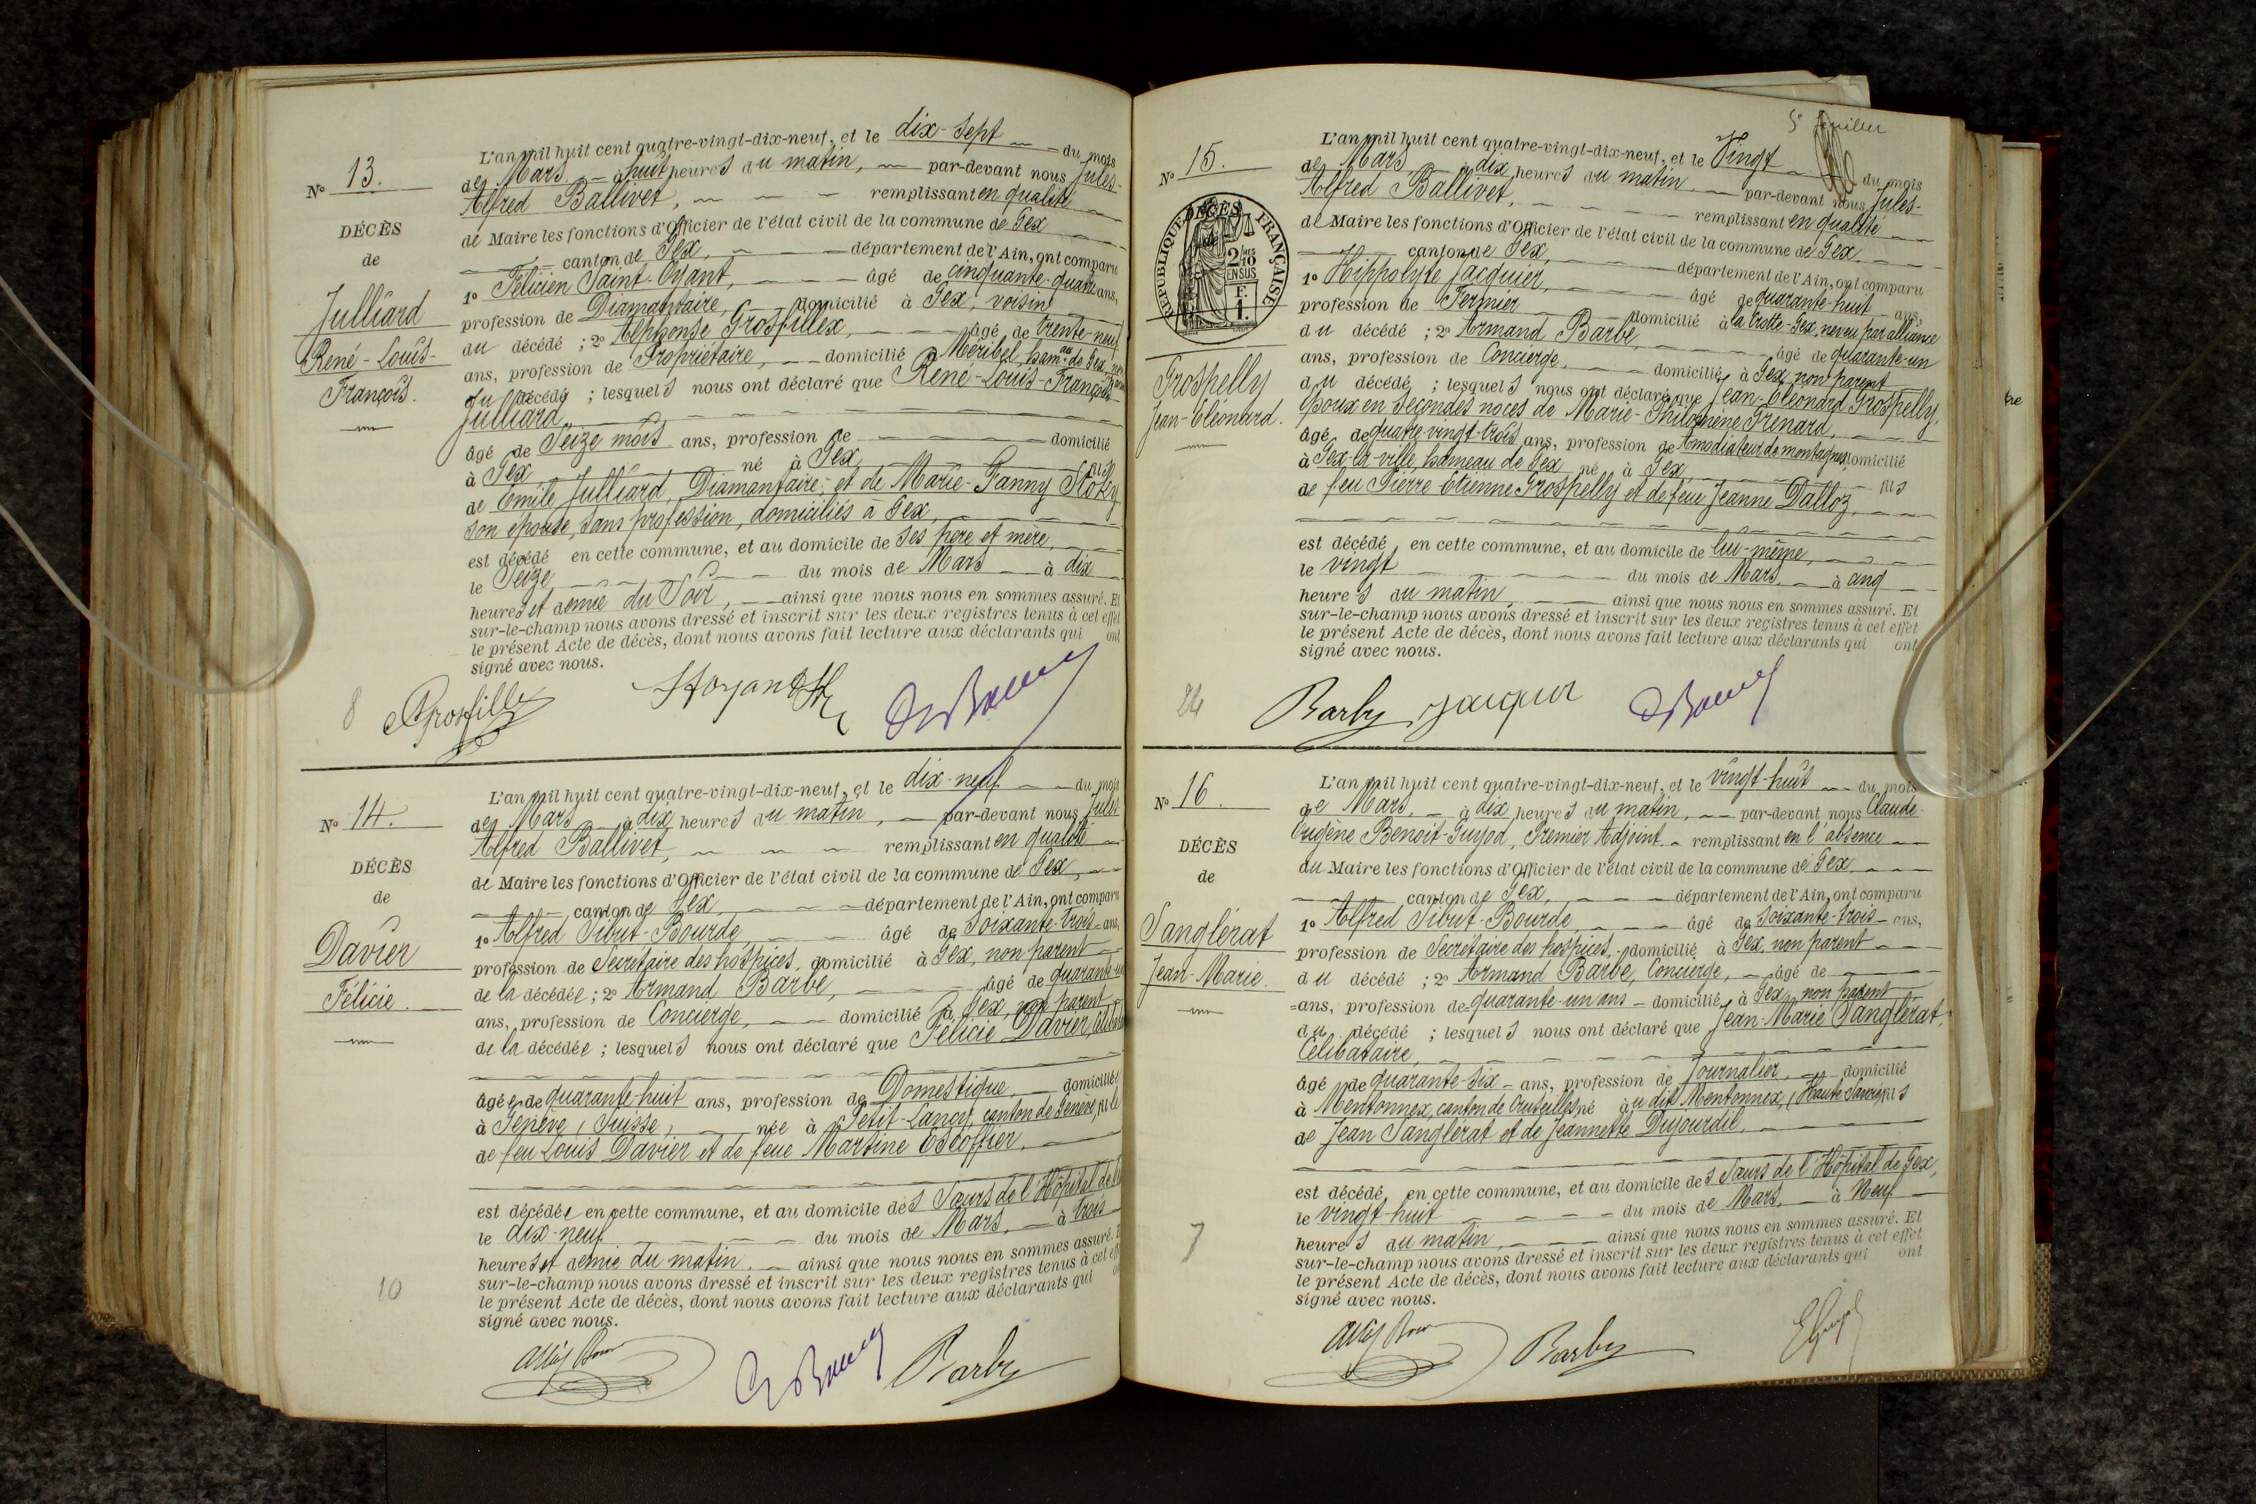 Nº 13.
DÉCÈS
de
Julliard
René-Louis-
François.
L'an mil huit cent quatre-vingt-dix-neuf, et le dix-sept du mois
de Mars à huit heures du matin, par-devant nous Jules-
Alfred Ballivet, remplissant en qualité
de Maire les fonctions d'Officier de l'état civil de la commune de Gex
canton de Gex, département de l'Ain, ont comparu
1º Félicien Saint-Oyant, âgé de cinquante-quatre ans,
profession de Diamantaire, domicilié à Gex, voisin
du décédé ; 2º Alphonse Grosfillex, âgé de trente-neuf
ans, profession de Propriétaire, domicilié à Méribel, hameau de Gex,
du décédé ; lesquels nous ont déclaré que René-Louis-François
Julliard,
âgé de Seize mois ans, profession de domicilié
à Gex né à Gex fils
de Emile Julliard, Diamantaire, et de Marie-Fanny
son épouse, sans profession, domiciliés à Gex,
est décédé en cette commune, et au domicile de ses père et mère,
le Seize du mois de Mars à dix
heures et demie du Soir, ainsi que nous nous en sommes assuré. Et
sur-le-champ nous avons dressé et inscrit sur les deux registres tenus à cet effet
le présent Acte de décès, dont nous avons fait lecture aux déclarants qui ont
signé avec nous.
8
Nº 14.
DÉCÈS
de
Davier
Félicie.
L'an mil huit cent quatre-vingt-dix-neuf, et le dix-neuf du mois
de Mars à dix heures du matin, par-devant nous Jules-
Alfred Ballivet, remplissant en qualité
de Maire les fonctions d'Officier de l'état civil de la commune de Gex,
canton de Gex, département de l'Ain, ont comparu
1º Alfred Tibut-Bourde âgé de Soixante-trois ans,
profession de Secrétaire des hospices, domicilié à Gex, non parent
de la décédée ; 2º Armand Barbe, âgé de quarante-un
ans, profession de Concierge, domicilié à Gex, non parent
de la décédée ; lesquels nous ont déclaré que Félicie Davier,
âgée de quarante-huit ans, profession de Domestique, domiciliée
à Genève, (Suisse) née à Petit-Lancy, canton de Genève, fille
de feu Louis Davier et de feue Martine Escoffier,
est décédée en cette commune, et au domicile des Sœurs de l'Hôpital de
le dix-neuf du mois de Mars, à trois
heures et demie du matin, ainsi que nous nous en sommes assuré. Et
sur-le-champ nous avons dressé et inscrit sur les deux registres tenus à cet effet
le présent Acte de décès, dont nous avons fait lecture aux déclarants qui
signé avec nous.
10
Barby
Nº 15.
RÉPUBLIQUE FRANÇAISE
DÉCÈS
de
2/10 EN SUS
F. 1.
Grospelly
Jean-Cléonard.
L'an mil huit cent quatre-vingt-dix-neuf, et le Vingt du mois
de Mars, à dix heures du matin, par-devant nous Jules-
Alfred Ballivet, remplissant en qualité
de Maire les fonctions d'Officier de l'état civil de la commune de Gex
canton de Gex, département de l'Ain, ont comparu
1º Hippolyte Jacquier, âgé de quarante-huit ans,
profession de Fermier domicilié à la Trotte-Gex, neveu par alliance
du décédé ; 2º Armand Barbe, âgé de quarante-un
ans, profession de Concierge, domicilié à Gex non parent
du décédé ; lesquels nous ont déclaré que Jean-Cléonard Grospelly,
Époux en secondes noces de Marie-Philomène Grenard,
âgé de quatre-vingt-trois ans, profession de Amodiateur de montagnes, domicilié
à Gex-la-ville, hameau de Gex né à Gex fils
de feu Pierre Etienne Grospelly et de feue Jeanne Dalloz,
est décédé en cette commune, et au domicile de lui-même,
le vingt du mois de Mars, à cinq
heures du matin, ainsi que nous nous en sommes assuré. Et
sur-le-champ nous avons dressé et inscrit sur les deux registres tenus à cet effet
le présent Acte de décès, dont nous avons fait lecture aux déclarants qui ont
signé avec nous.
24
Barby Jacquier
Nº 16.
DÉCÈS
de
Sanglérat
Jean-Marie.
L'an mil huit cent quatre-vingt-dix-neuf, et le vingt-huit du mois
de Mars, à dix heures du matin, par-devant nous Claude-
Eugène Benoit-Guyod, Premier Adjoint, remplissant en l'absence
du Maire les fonctions d'Officier de l'état civil de la commune de Gex,
canton de Gex, département de l'Ain, ont comparu
1º Alfred Tibut-Bourde, âgé de Soixante-trois ans,
profession de Secrétaire des hospices, domicilié à Gex, non parent
du décédé ; 2º Armand Barbe, Concierge, âgé de
ans, profession de quarante-un ans domicilié à Gex, non parent
du décédé ; lesquels nous ont déclaré que Jean-Marie Sanglérat,
Célibataire,
âgé de quarante-six ans, profession de Journalier, domicilié
à Mentonnex, canton de Cruseilles né au dit Mentonnex, (Haute-Savoie) fils
de Jean Sanglérat et de Jeannette Dujourdil,
est décédé en cette commune, et au domicile des Sœurs de l'Hôpital de Gex,
le vingt-huit du mois de Mars, à Neuf
heures du matin, ainsi que nous nous en sommes assuré. Et
sur-le-champ nous avons dressé et inscrit sur les deux registres tenus à cet effet
le présent Acte de décès, dont nous avons fait lecture aux déclarants qui ont
signé avec nous.
7
Barby